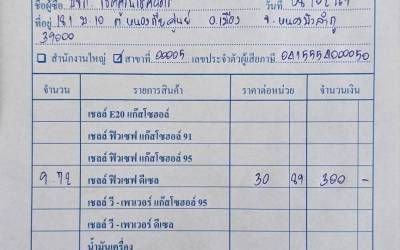 ชื่อผู้ซื้อ
วันที่
ที่อยู่ 181 ม.10 ต.หนองภัยศูนย์ อ.เมือง จ.หนองบัวลำภู
39000
สำนักงานใหญ่ ☑ สาขาที่ 00005 เลขประจำตัวผู้เสียภาษี
จำนวน รายการสินค้า ราคาต่อหน่วย จำนวนเงิน
เชลล์ E20 แก๊สโซฮอล์
เชลล์ ฟิวเซฟ แก๊สโซฮอล์ 91
เชลล์ ฟิวเซฟ แก๊สโซฮอล์ 95
9.72 เชลล์ ฟิวเซฟ ดีเซล 30 89 300 -
เชลล์ วี - เพาเวอร์ แก๊สโซฮอล์ 95
เชลล์ วี - เพาเวอร์ ดีเซล
น้ำมันเครื่อง